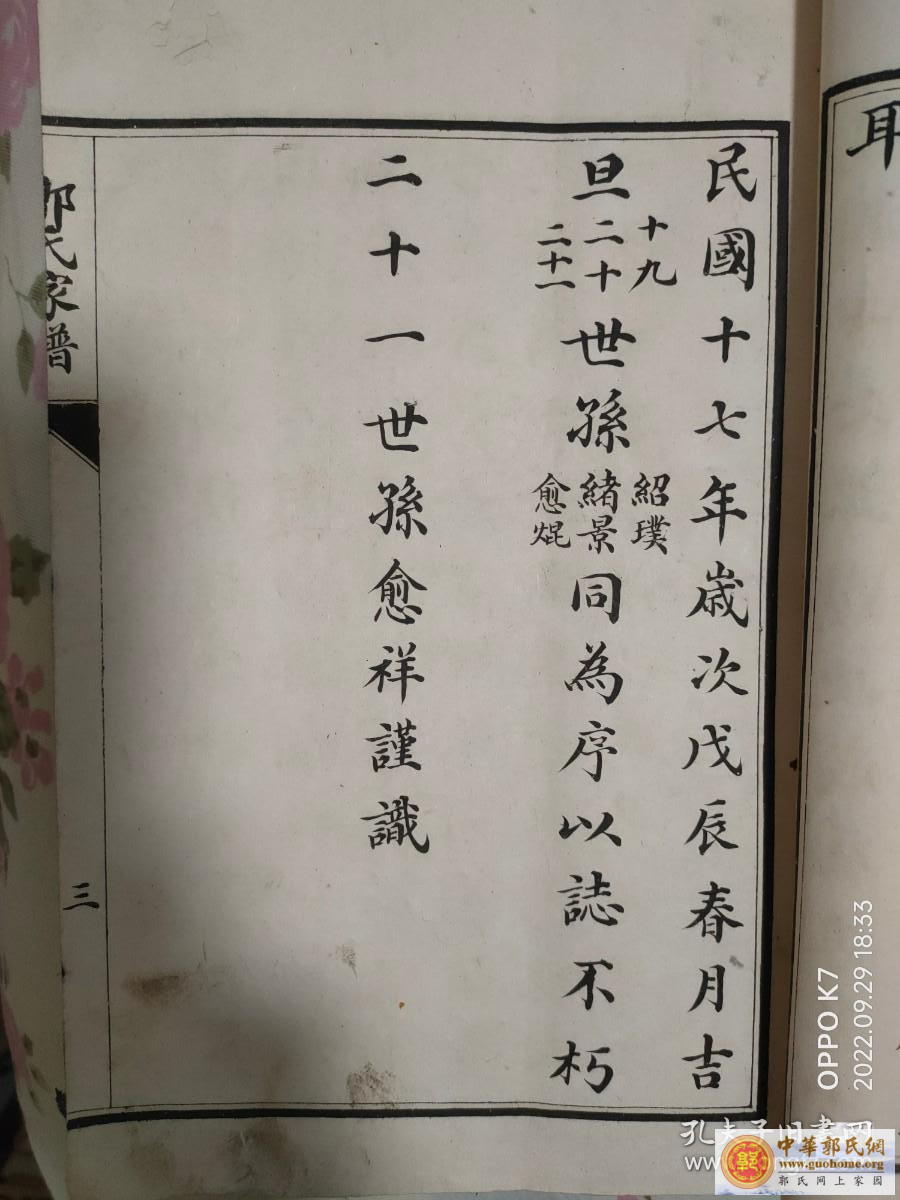 耳
民國十七年歲次戊辰春月吉
旦
十九
二十
二十一
世孫
紹璞
緒景
愈焜
同為序以誌不朽
二十一世孫愈祥謹識
郭氏家譜
三
OPPO K7
2022.09.29 18:33
孔夫子旧書网
中華郭氏網
www.guohome.org
郭氏网上家园